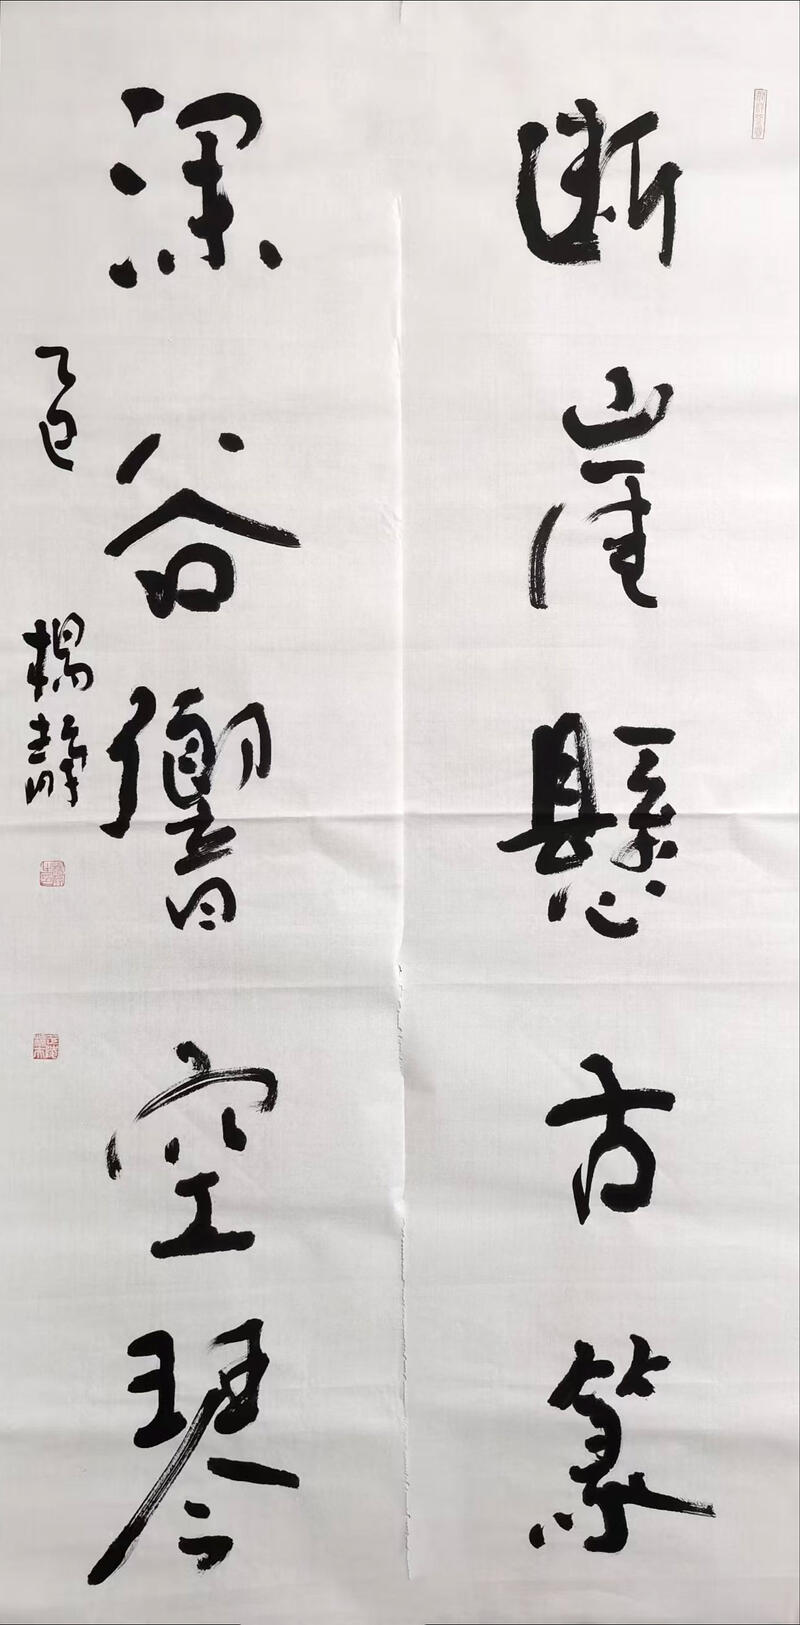 断崖懸古篆
深谷響空琴
乙巳
楊靜